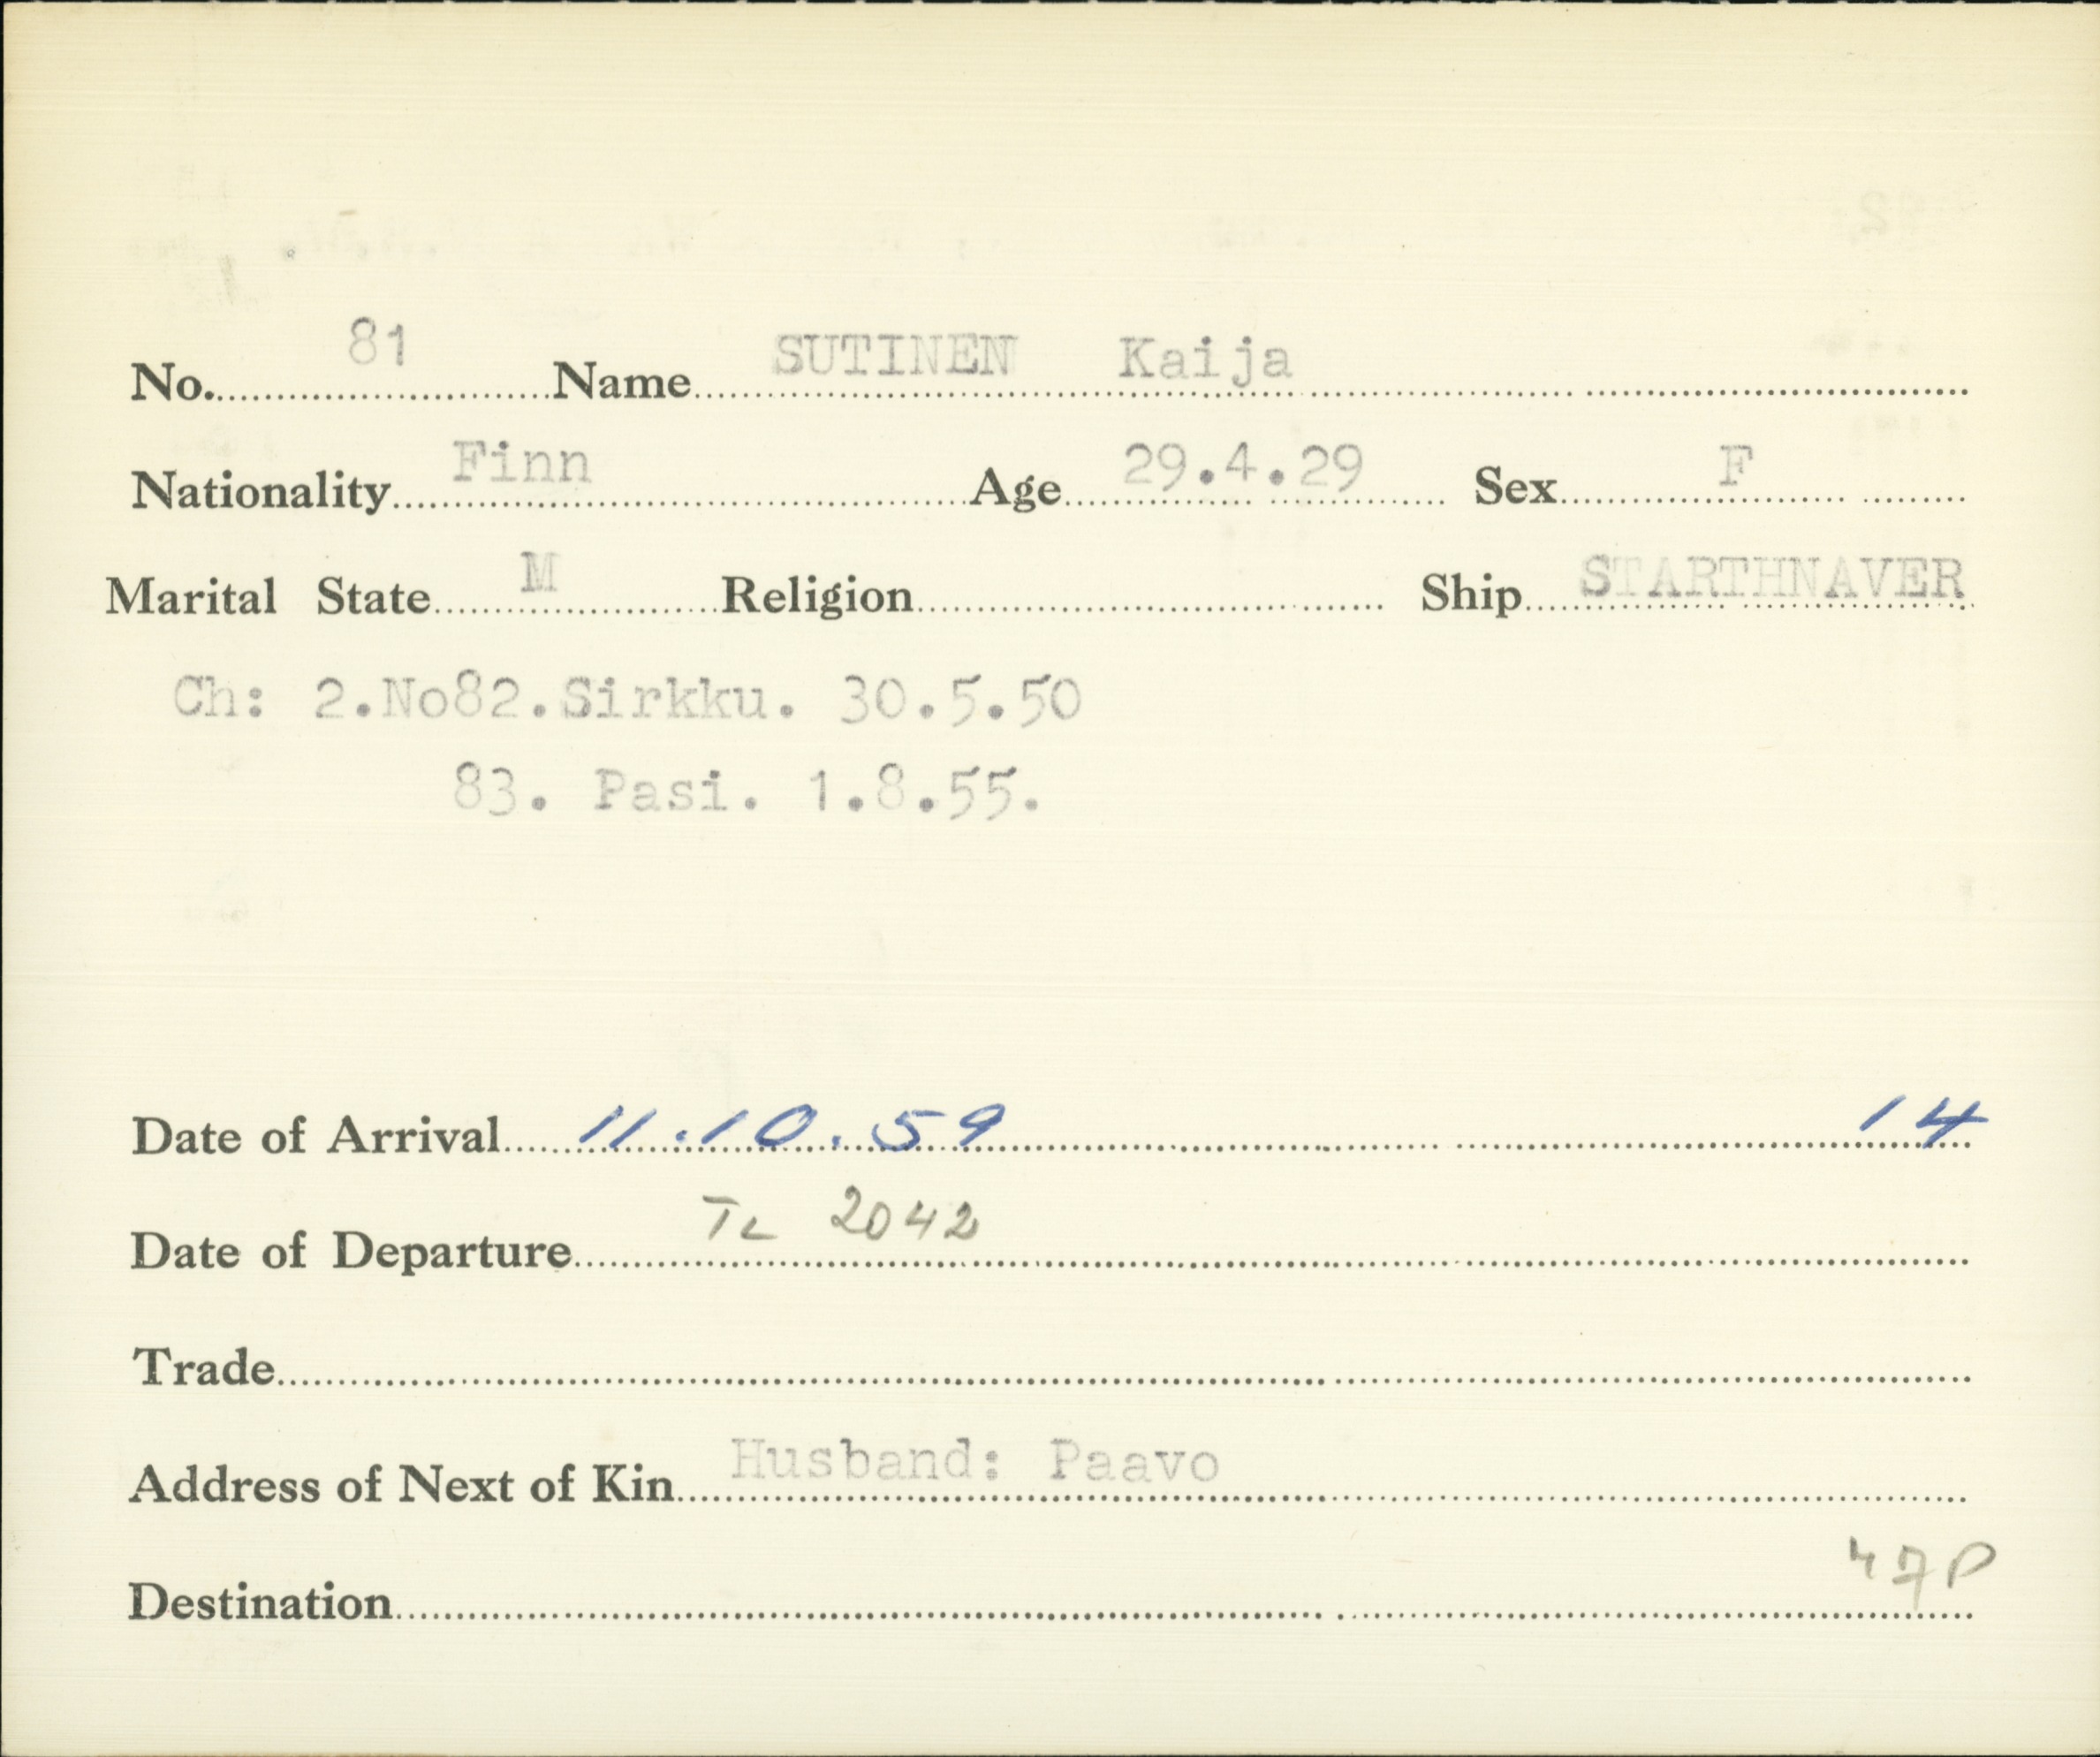 No. 81 Name SUTINEN Kaija
Nationality Finn Age 29.4.29 Sex F
Marital State M Religion Ship STARTHNAVER
Ch: 2.No82.Sirkku. 30.5.50
83. Pasi. 1.8.55.
Date of Arrival 11.10.59 14
Date of Departure TL 2042
Trade
Address of Next of Kin Husband: Paavo
47P
Destination